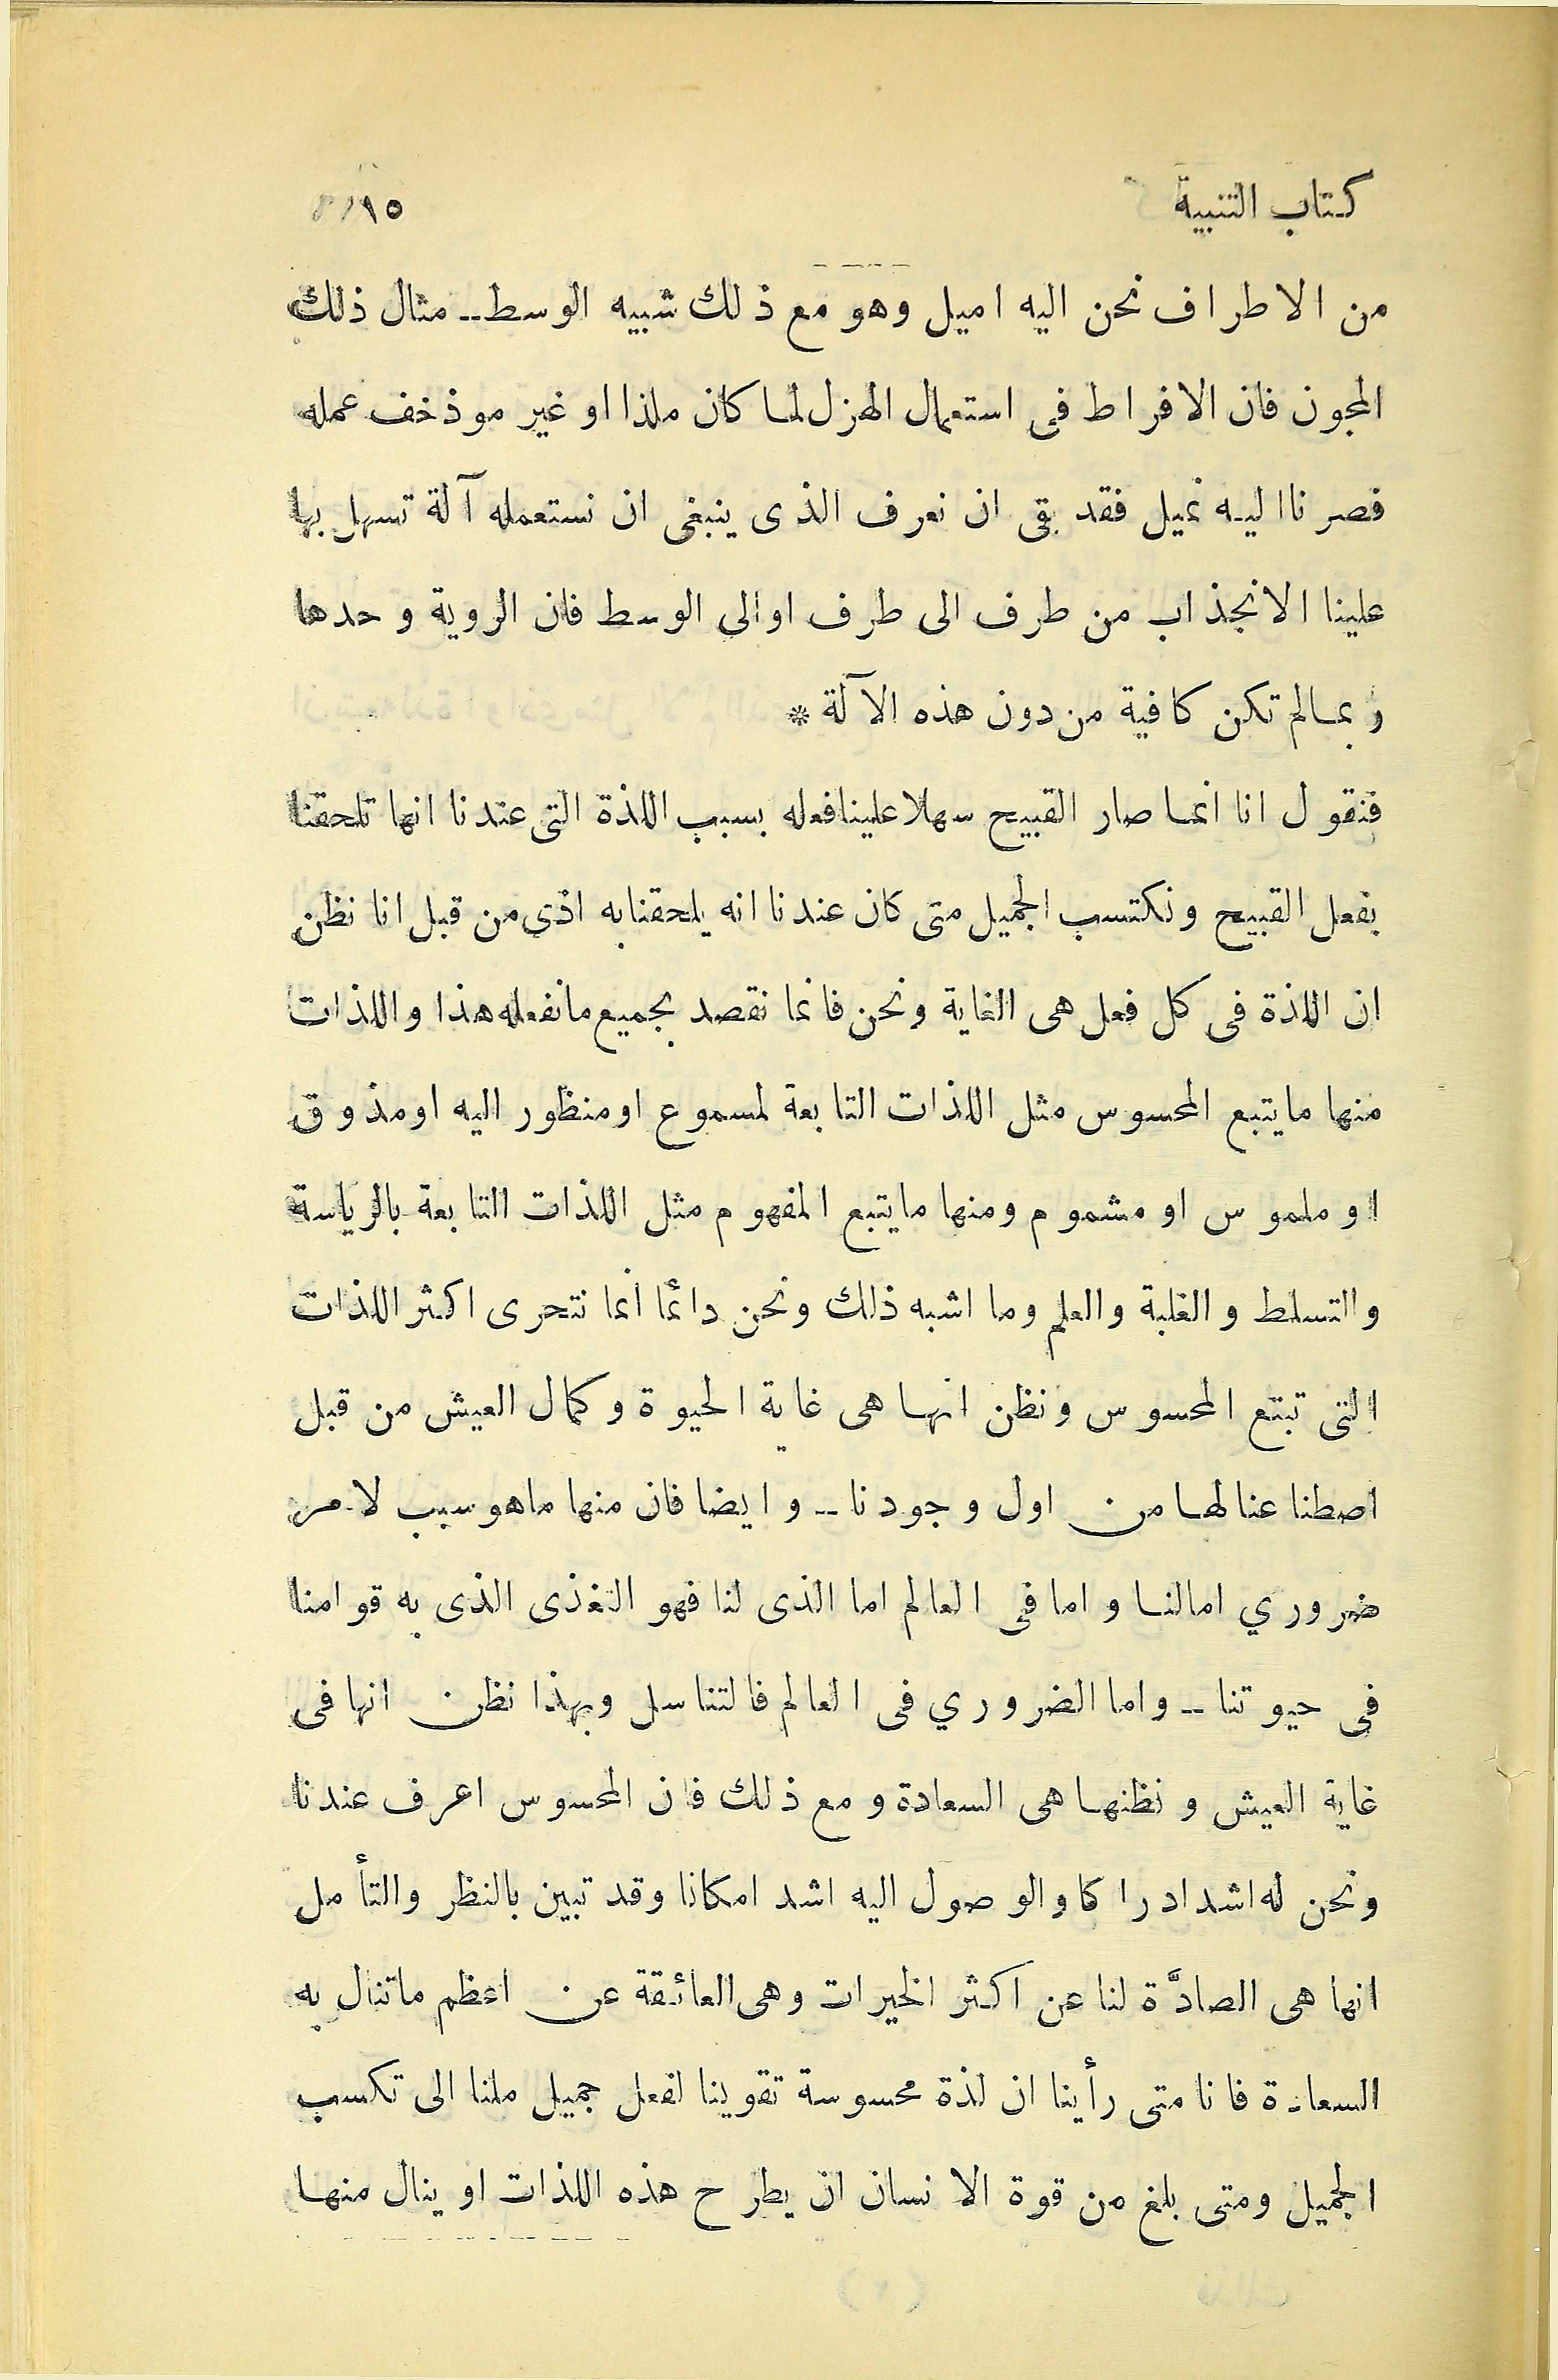 كتاب التنبيه ١٥
من الاطراف نحن اليه اميل وهو مع ذلك شبيه الوسط-- مثال ذلك
المجون فان الافراط فى استعمال الهزل لما كان ملذا او غير موذ خف عمله
فصرنا اليه نميل فقد بقى ان نعرف الذى ينبغى ان نستعمله آلة تسهل بها
علينا الانجذاب من طرف الى طرف او الى الوسط فان الروية وحدها
ربما لم تكن كافية من دون هذه الآلة *
فنقول انا انما صار القبيح سهلا علينا فعله بسبب اللذة التى عندنا انها تلحقنا
بفعل القبيح ونكتسب الجميل متى كان عندنا انه يلحقنا به اذى من قبل انا نظن
ان اللذة فى كل فعل هى الغاية ونحن فانما نقصد بجميع ما نفعله هذا واللذات
منها ما يتبع المحسوس مثل اللذات التابعة لمسموع او منظور اليه او مذوق
او ملموس او مشموم ومنها ما يتبع المفهوم مثل اللذات التابعة بالرياسة
والتسلط والغلبة والعلم وما اشبه ذلك ونحن دائما انما نتحرى اكثر اللذات
التى تبتع المحسوس ونظن انها هى غاية الحيوة وكمال العيش من قبل
اصطناعنا لها من اول وجودنا -- وايضا فان منها ما هو سبب لامر
ضروري اما لنا واما فى العالم اما الذى لنا فهو التغذى الذى به قوامنا
فى حيوتنا -- واما الضروري فى العالم فالتناسل وبهذا نظن انها فى
غاية العيش ونظنها هى السعادة ومع ذلك فان المحسوس اعرف عندنا
ونحن له اشد ادراكا والوصول اليه اشد امكانا وقد تبين بالنظر والتأمل
انها هى الصادَّة لنا عن اكثر الخيرات وهى العائقة عن اعظم ما تنال به
السعادة فانا متى رأينا ان لذة محسوسة تقوينا لفعل جميل ملنا الى تكسب
الجميل ومتى بلغ من قوة الانسان ان يطرح هذه اللذات او ينال منها